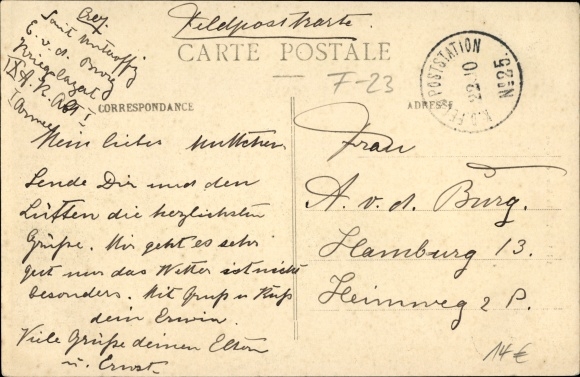 Feldpostkarte.
CARTE POSTALE
CORRESPONDANCE
ADRESSE
F-23
Sanit Unteroffz
E. v. d. Burg
Kriegslazaret
IX A. K. Abt I
I Armee
POSTSTATION
22.10
No 25.
Mein liebes Muttchen
Sende Dir und den
Lütten die herzlichsten
Grüße. Mir geht es sehr
gut nur das Wetter ist nicht
besonders. Mit Gruß u Kuß
dein Erwin
Viele Grüße deinen Eltern
u. Ernst.
Frau
A. v. d. Burg.
Hamburg 13.
Heimweg 2 P.
14€